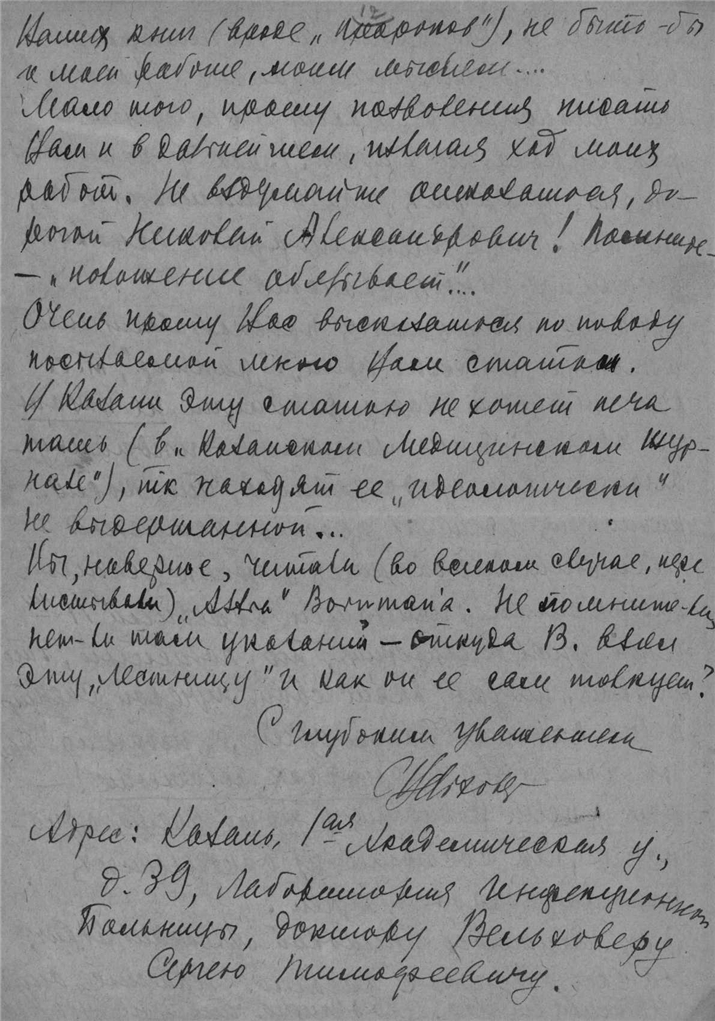 Ваших книг (вроде „Пророков"), не быть-бы
и моей работе, моим мыслям....
Мало того, прошу позволения писать
Вам и в дальнейшем, излагая ход моих
работ. Не вздумайте отказаться, до-
рогой Николай Александрович! Помните-
— „положение обязывает"!..
Очень прошу Вас высказаться по поводу
посылаемой мною Вам статьи.
У Казани эту статью не хотят печа
тать (в „Казанском Медицинском Жур-
нале"), тк находят ее „идеологически"
не выдержанной...
Вы, наверное, читали (во всяком случае, пере
листывали) „Astra" Bornman'a. Не помните-ли,
нет-ли там указаний – откуда В. взял
эту „Лестницу" и как он ее сам толкует?
С глубоким уважением
Адрес: Казань, 1ая Академическая у.,
д. 39, Лаборатория Инфекционной
Больницы, доктору Вельховеру
Сергею Тимофеевичу.